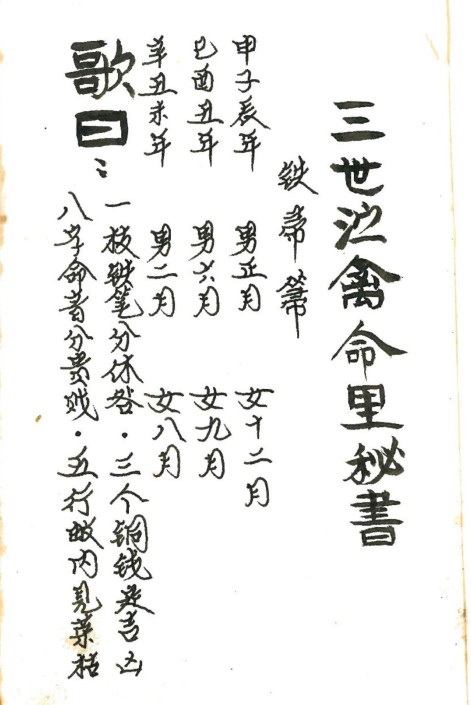 三世禽命里秘書
铁箒
甲子辰年 男正月 女十二月
巳酉丑年 男六月 女九月
辛丑未年 男二月 女八月
歌曰：
一枝铁笔分休咎·三个铜钱定吉凶
八字命分贵贱·五行内見荣枯